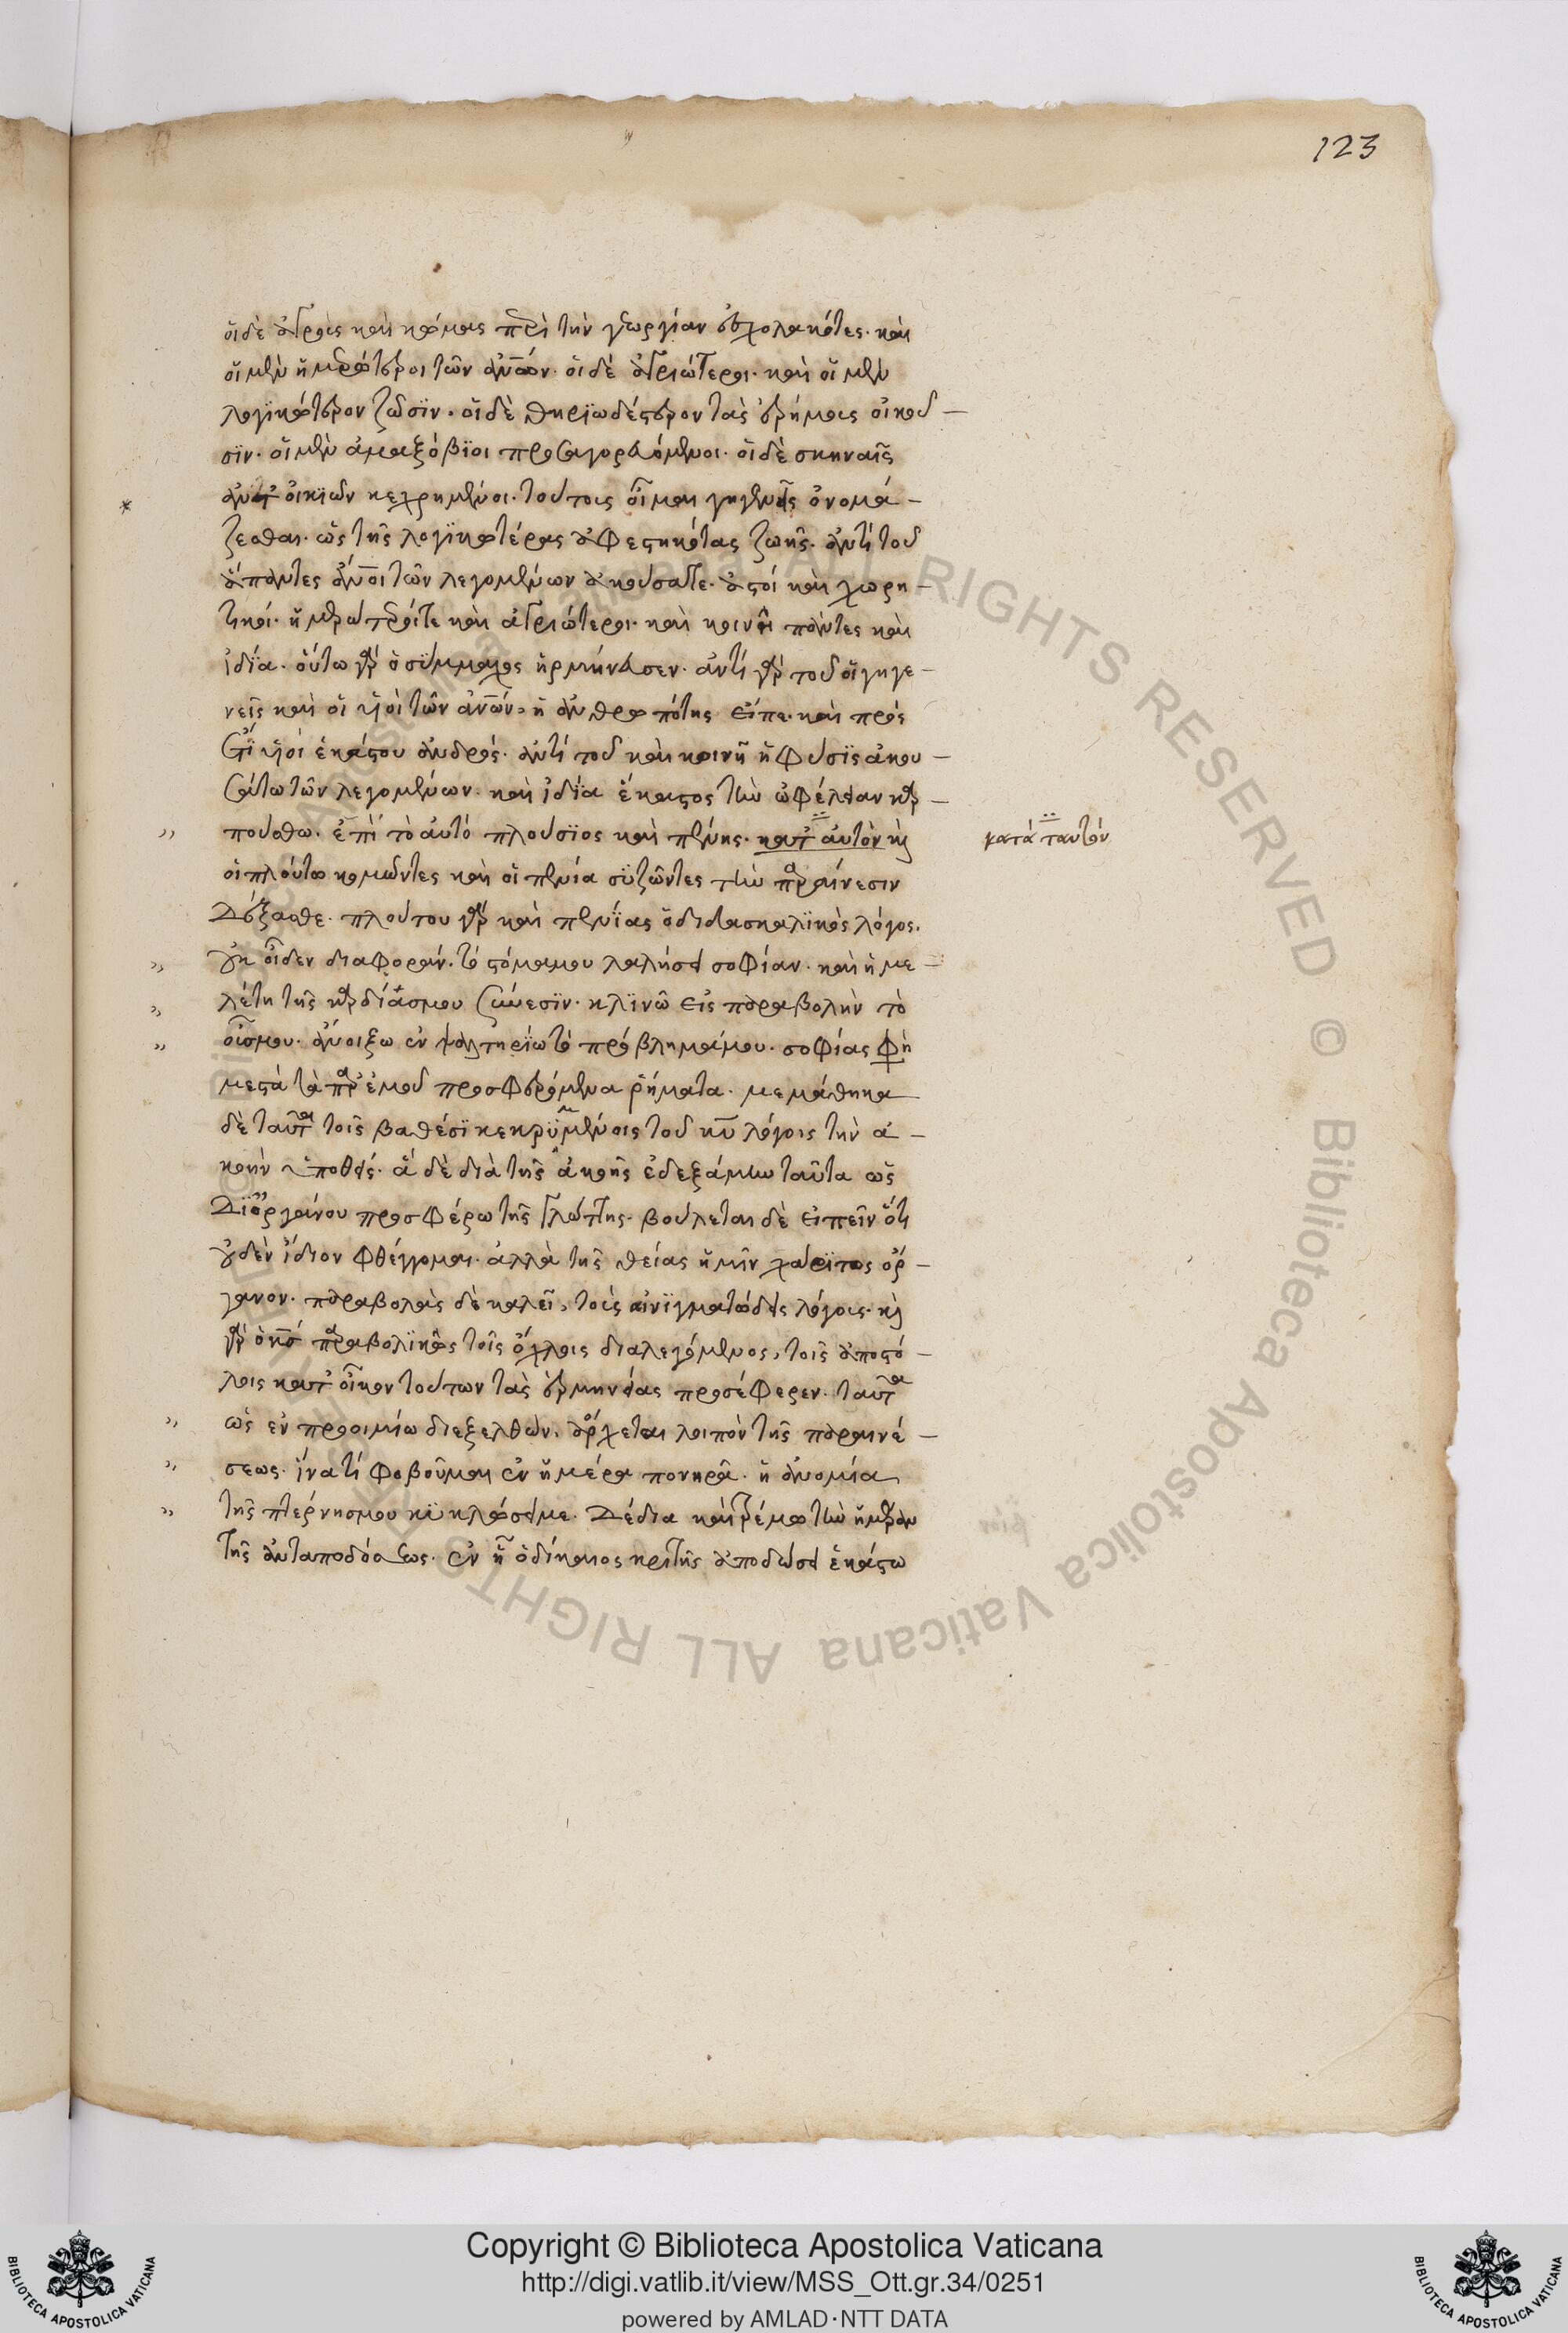 123
οἱ δὲ ἀγροὺς καὶ κώμας περὶ τὴν γεωργίαν ἠσχολακότες· καὶ
οἱ μὲν ἡμερώτεροι τῶν ἀνῶν· οἱ δὲ ἀγριώτεροι· καὶ οἱ μὲν
λογϊκώτερον ζῶσϊν· οἱ δὲ θηρϊωδέστερον τὰς ἐρήμους οἰκοῦ –
σϊν· οἱ μὲν ἁμαξόβϊοι προσαγορευόμενοι· οἱ δὲ σκηναῖς
ἀντὶ οἰκϊῶν κεχρημένοι· τούτους οἶμαι γηγενεῖς ὀνομά –
ζεσθαι· ὡς τῆς λογϊκωτέρας ἀφεστηκότας ζωῆς· ἀντὶ τοῦ
ἅπαντες ἄνοι τῶν λεγομένων ἀκούσατε· ἀστοὶ καὶ χωρη –
τικοί· ἡμερώτεροί τε καὶ ἀγριώτεροι· καὶ κοινῇ πάντες καὶ
ἰδία· οὕτω γὰρ ὁ σύμμαχος ἡρμήνευσεν· ἀντὶ γὰρ τοῦ οἱ γηγε –
νεῖς καὶ οἱ υἱοὶ τῶν ἀνῶν, ἡ ἀνθρωπότης εἶπε· καὶ πρός
ἔτι υἱοὶ ἑκάστου ἀνδρός· ἀντὶ τοῦ καὶ κοινὴ ἡ φύσϊς ἀκου –
σάτω τῶν λεγομένων· καὶ ἰδία ἕκαστος τὴν ὠφέλειαν καρ –
πούσθω· ἐπὶ τὸ ἀυτὸ πλούσϊος καὶ πένης· κατ' ἀυτὸν καὶ
κατὰ ταυτὸν
οἱ πλούτω κομῶντες καὶ οἱ πενία συζῶντες τὴν παραίνεσιν
Δέξασθε· πλούτου γὰρ καὶ πενΐας ὁ διδασκαλϊκὸς λόγος·
οὐκ οἶδεν διαφοράν· τὸ στόμα μου λαλήσει σοφίαν· καὶ ἡ με –
λέτη τῆς καρδίας μου σύνεσϊν· κλϊνῶ εἰς παραβολὴν τὸ
οὖς μου· ἀνοίξω ἐν ψαλτηρίω τὸ πρόβλημά μου· σοφίας φη
μεστὰ τὰ παρ' ἐμοῦ προσφερόμενα ῥήματα· μεμάθηκα
δὲ ταῦτα τοῖς βαθέσϊ κεκρυμμένοις τοῦ κυ λόγοις τὴν ἀ –
κοὴν ὑποθείς· ἃ δὲ διὰ τῆς ἀκοῆς ἐδεξάμην ταῦτα ὡς
Δϊ' ὀργάνου προσφέρω τῆς γλώττης· βούλεται δὲ εἰπεῖν ὅτι
οὐδὲν ἴδιον φθέγγομαι· ἀλλὰ τῆς θείας ἡμὴν χάριτος ὄρ –
γανον· παραβολὰς δὲ καλεῖ, τοὺς αἰνϊγματώδεις λόγους· καὶ
γὰρ ὁ κς παραβολϊκῶς τοῖς ὄχλοις διαλεγόμενος, τοῖς ἀποστό –
λοις κατ' οἶκον τούτων τὰς ἑρμηνείας προσέφερεν· ταῦτα
ὡς ἐν προοιμίω διεξελθὼν, ἄρχεται λοιπὸν τῆς παραινέ –
σεως· ἵνα τί φοβοῦμαι ἐν ἡμέρα πονηρᾶ· ἡ ἀνομία
τῆς πτέρνης μου κϋκλώσει με· Δέδια καὶ τρέμω τὴν ἡμέραν
τῆς ἀνταποδόσεως· ἐν ᾗ ὁ δίκαιος κριτὴς ἀποδώσει ἑκάστω
Copyright © Biblioteca Apostolica Vaticana
http://digi.vatlib.it/view/MSS_Ott.gr.34/0251
powered by AMLAD · NTT DATA
BIBLIOTECA APOSTOLICA VATICANA
BIBLIOTECA APOSTOLICA VATICANA
© Biblioteca Apostolica Vaticana ALL RIGHTS RESERVED © Biblioteca Apostolica Vaticana ALL RIGHTS RESERVED